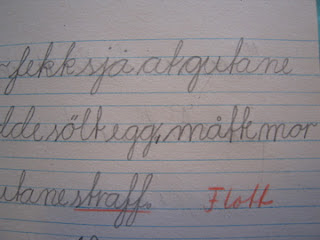 fekk sjå at gutane
lde sølt egg, måtte mor
utane straff. Flott